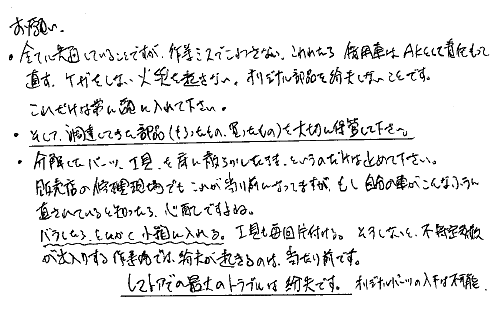 お願い。
・全てに共通していることですが、作業ミスでこわさない、こわれたら 使用車はAKにて責任もって
直す。ケガをしない 火災を起さない。オリジナル部品を紛失しないことです。
これだけは常に頭に入れて下さい。
・そして、調達してきた部品(もらったもの、買ったもの)を大切に保管して下さい。
・分解したパーツ、工具、を床に散らかしたまま、というのだけは止めて下さい。
販売店の修理現場でもこれが当り前になってますが、もし自分の車がこんなふうに
直されていると知ったら、心配ですよね。
バラしたら、とにかく小箱に入れる。工具も毎回片付ける。そうしないと、不特定多数
が出入りする作業場では、紛失が起きるのは、当たり前です。
レストアでの最大のトラブルは紛失です。オリジナルパーツの入手は不可能。